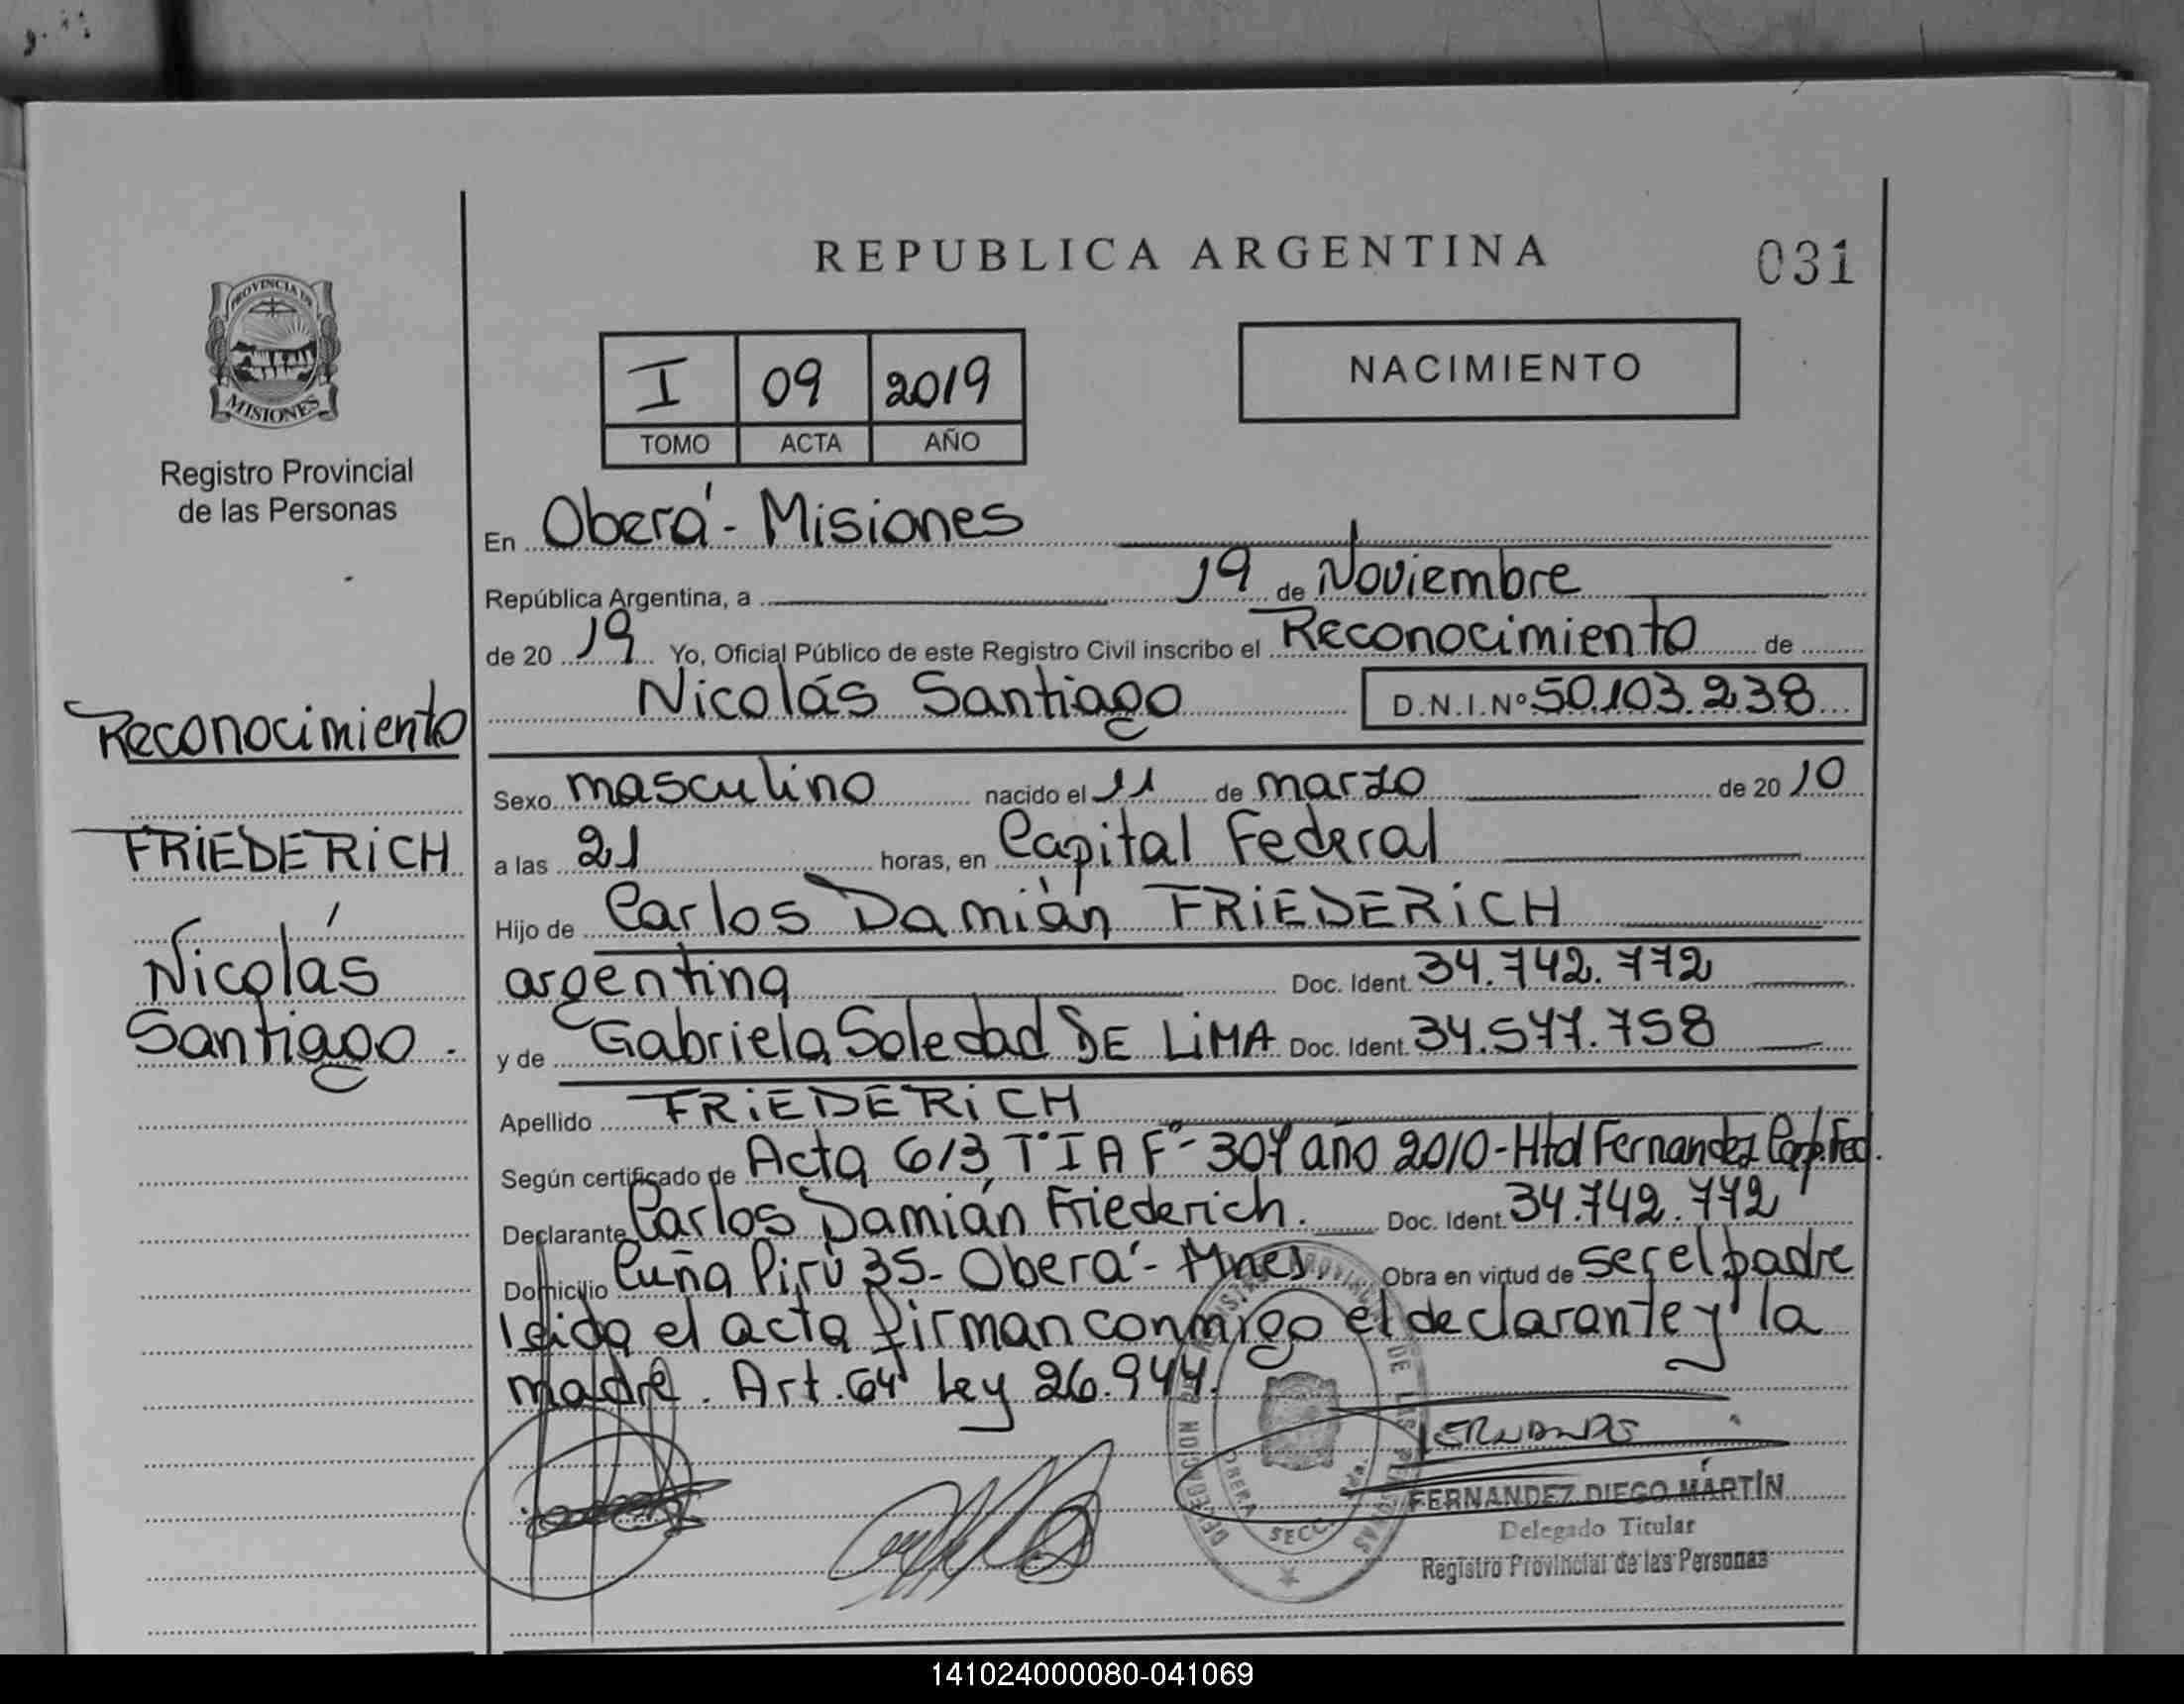 REPUBLICA ARGENTINA
031
PROVINCIA DE
MISIONES
Registro Provincial
de las Personas
I 09 2019
TOMO ACTA AÑO
NACIMIENTO
En Oberá - Misiones
República Argentina, a 19 de Noviembre
de 20 19 Yo, Oficial Público de este Registro Civil inscribo el Reconocimiento de
Nicolás Santiago D.N.I.Nº 50.103.238
Reconocimiento
FRIEDERICH
Nicolás
Santiago.
Sexo masculino nacido el 11 de marzo de 20 10
a las 21 horas, en Capital Federal
Hijo de Carlos Damián FRIEDERICH
argentina Doc. Ident. 34.742.772
y de Gabriela Soledad DE LIMA Doc. Ident. 34.577.758
Apellido FRIEDERICH
Según certificado de Acta 613 Tº I A Fº - 307 año 2010 - Htal Fernandez Cap. Fed.
Declarante Carlos Damián Friederich. Doc. Ident. 34.742.772
Domicilio Cuña Pirú 35 - Oberá - Mnes. Obra en virtud de ser el padre
leida el acta firman conmigo el declarante y la
madre. Art. 64 Ley 26.944.
FERNANDEZ DIEGO MARTÍN
Delegado Titular
Registro Provincial de las Personas
OBERA SECC.
141024000080-041069